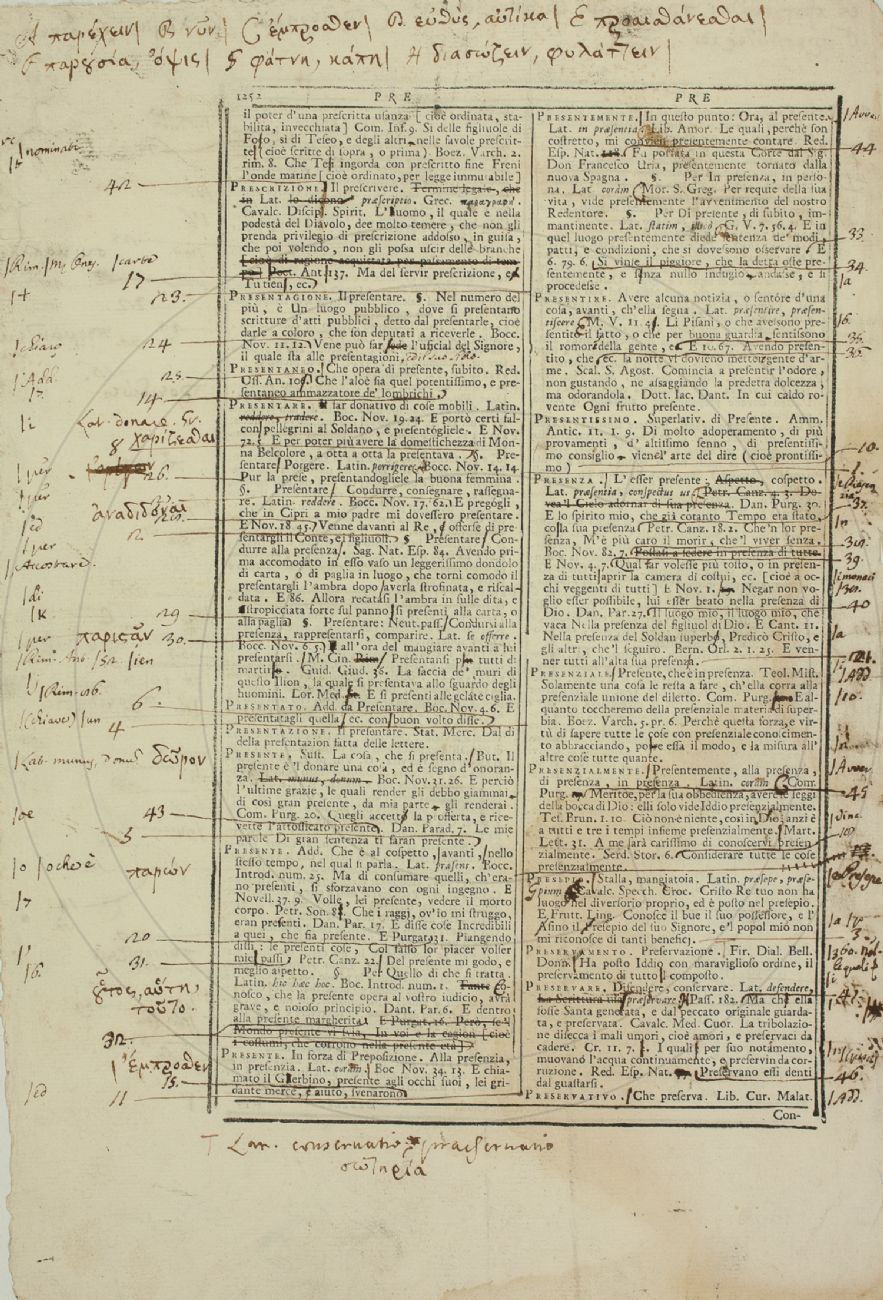 A παρέχειν| B νῦν| C ἔμπροσθεν| D εὐθύς, αὐτίκα| E προαισθάνεσθαι|
F παρουσία, ὄψις| G φάτνη, κάπη| H διασώζειν, φυλάττειν|
1252 PRE PRE
il poter d'una prescritta usanza [ cioè ordinata, sta-
bilita, invecchiata ] Com. Inf. 9. Sì delle figliuole di
Foro, sì di Teseo, e degli altri nelle favole prescrit-
te [ cioè scritte di sopra, o prima ) Boez. Varch. 2.
rim. 8. Che Teti ingorda con prescritto fine Freni
l'onde marine [ cioè ordinato, per legge immutabile ]
PRESCRIZIONE. Il prescrivere. Termine legale, che
in Lat. lo dicono præscriptio. Grec.
Cavalc. Discipl. Spirit. L'uomo, il quale è nella
podestà del Diavolo, dee molto temere, che non gli
prenda privilegio di prescrizione addosso, in guisa,
che poi volendo, non gli possa uscir delle branche
[ cioè di ragione acquistata per passamento di tem-
po] Poet. Ant. 137. Ma del servir prescrizione, e
Tu tieni, ec.
PRESENTAGIONE. Il presentare. §. Nel numero del
più, è Un luogo pubblico, dove si presentano
scritture d'atti pubblici, detto dal presentarle, cioè
darle a coloro, che son deputati a riceverle. Bocc.
Nov. 11. 12. Vene può far fede l'uficial del Signore,
il quale sta alle presentagioni,
PRESENTANEO. Che opera di presente, subito. Red.
Oss. An. 105. Che l'aloè sia quel potentissimo, e pre-
sentaneo ammazzatore de' lombrichi.
PRESENTARE. far donativo di cose mobili. Latin.
reddere, tradere. Bocc. Nov. 19. 24. E portò certi fal-
con pellegrini al Soldano, e presentógliele. E Nov.
72. E per poter più avere la domestichezza di Mon-
na Belcolore, a otta a otta la presentava. §. Pre-
sentare Porgere. Latin. porrigere. Bocc. Nov. 14. 14.
Pur la prese, presentandogliele la buona femmina.
§. Presentare Condurre, consegnare, rassegna-
re. Latin. reddere. Bocc. Nov. 17. 62. E pregógli,
che in Cipri a mio padre mi dovessero presentare.
E Nov. 18. 45. Venne davanti al Re, e offerse di pre-
sentargli il Conte, e i figliuoli. § Presentare Con-
durre alla presenza. Sag. Nat. Esp. 84. Avendo prima
accomodato in esso vaso un leggerissimo dondolo
di carta, o di paglia in luogo, che torni comodo il
presentargli l'ambra dopo averla strofinata, e riscal-
data. E 86. Allora recatasi l'ambra in sulle dita, e
stropicciata forte sul panno si presenti alla carta, o
alla paglia) §. Presentare: Neut. pass. Condursi alla
presenza, rappresentarsi, comparire. Lat. se offerre.
Bocc. Nov. 6. 5. all'ora del mangiare avanti a lui
presentarsi. M. Cin. Rim. Presentansi tutti di
martiri. Guid. Giud. 36. La faccia de' muri di
questo Ilion, la quale si presentava allo sguardo degli
huomini. Lor. Med. E si presenti alle gelate ciglia.
PRESENTATO. Add. da Presentare. Boc. Nov. 4. 6. E
presentatagli quella, ec. con buon volto disse.
PRESENTAZIONE. Il presentare. Stat. Merc. Dal dì
della presentazion fatta delle lettere.
PRESENTE. Sust. La cosa, che si presenta. But. Il
presente è 'l donare una cosa, ed è segno d'onoran-
za. Lat. munus, donum. Boc. Nov. 31. 26. E perciò
l'ultime grazie, le quali render gli debbo giammai,
di così gran presente, da mia parte gli renderai.
Com. Purg. 20. Quegli accettò la profferta, e rice-
vette l'attossicato presente. Dan. Parad. 7. Le mie
parole Di gran sentenza ti faran presente.
PRESENTE. Add. Che è al cospetto, avanti, nello
stesso tempo, nel qual si parla. Lat. præsens. Bocc.
Introd. num. 25. Ma di consumare quelli, ch'era-
no presenti, si sforzavano con ogni ingegno. E
Novell. 37. 9. Volle, lei presente, vedere il morto
corpo. Petr. Son. 8. Che i raggi, ov'io mi struggo,
eran presenti. Dan. Par. 17. E disse cose Incredibili
a quei, che fia presente. E Purgat. 31. Piangendo
dissi: le presenti cose, Col falso lor piacer volser
mie' passi. Petr. Canz. 22. Del presente mi godo, e
meglio aspetto. § Per Quello di che si tratta.
Latin. hic hæc hoc. Boc. Introd. num. 1. Tante co-
nosco, che la presente opera al vostro iudicio, avrà
grave, e noioso principio. Dant. Par. 6. E dentro
alla presente margherita. E Purgat. 16. Però, se 'l
Mondo presente vi svia, In voi è la cagion [ cioè
i costumi, che corrono nella presente età)
PRESENTE. In forza di Preposizione. Alla presenza,
in presenza. Lat. coram. Boc. Nov. 34. 13. E chia-
mato il Gerbino, presente agli occhi suoi, lei gri-
dante mercè, e aiuto, svenarono.
PRESENTEMENTE. In questo punto: Ora, al presente.
Lat. in præsentia. Lib. Amor. Le quali, perchè son
costretto, mi convien presentemente contare. Red.
Esp. Nat. Fu portata in questa Corte dal Sig.
Don Francesco Uria, presentemente tornato dalla
nuova Spagna. §. Per In presenza, in perso-
na. Lat. coram. Mor. S. Greg. Per requie della sua
vita, vide presentemente l'avvenimento del nostro
Redentore. §. Per Di presente, di subito, im-
mantinente. Lat. statim, illico. G. V. 7. 56. 4. E in
quel luogo presentemente diede sentenza de' modi,
patti, e condizioni, che si dovessono osservare. E
6. 79. 6. Si vinse il piggiore, che la detta oste pre-
sentemente, e sanza nullo indugio andasse, e si
procedesse.
PRESENTIRE. Avere alcuna notizia, o sentóre d'una
cosa, avanti, ch'ella segua. Lat. præsentire, præsen-
tiscere. M. V. 11. 4. Li Pisani, o che avessono pre-
sentito il fatto, o che per buona guardia sentissono
il romore della gente, ec. E 10. 67. Avendo presen-
tito, che ec. la notte vi dovieno mettere gente d'ar-
me. Scal. S. Agost. Comincia a presentir l'odore,
non gustando, ne assaggiando la predetta dolcezza,
ma odorandola. Dott. Iac. Dant. In cui caldo ro-
vente Ogni frutto presente.
PRESENTISSIMO. Superlativ. di Presente. Amm.
Antic. 11. 1. 9. Di molto adoperamento, di più
provamenti, d'altissimo senno, di presentissi-
mo consiglio vien l'arte del dire ( cioè prontissi-
mo )
PRESENZA. L'esser presente: Aspetto, cospetto.
Lat. præsentia, conspectus us. Petr. Canz. 4. 3. Do-
vea 'l Cielo adornar di sua presenza. Dan. Purg. 30.
E lo spirito mio, che già cotanto Tempo era stato,
colla sua presenza. Petr. Canz. 18. 2. Che 'n lor pre-
senza, M'è più caro il morir, che 'l viver senza.
Boc. Nov. 82. 7. Postasi a sedere in presenza di tutte.
E Nov. 4. 7. Qual far volesse più tosto, o in presen-
za di tutti aprir la camera di costui, ec. [cioè a oc-
chi veggenti di tutti] E Nov. 1. Negar non vo-
glio esser possibile, lui esser beato nella presenza di
Dio. Dan. Par. 27. Il luogo mio, il luogo mio, che
vaca Nella presenza del figliuol di Dio. E Cant. 11.
Nella presenza del Soldan superba, Predicò Cristo, e
gli altri, che 'l seguiro. Bern. Orl. 2. 1. 25. E ven-
ner tutti all'alta sua presenza.
PRESENZIALE. Presente, che è in presenza. Teol. Mist.
Solamente una cosa le resta a fare, ch'ella corra alla
presenziale unione del diletto. Com. Purg. E al-
quanto toccheremo della presenziale materia di super-
bia. Boez. Varch. 5. pr. 6. Perchè questa forza, e vir-
tù di sapere tutte le cose con presenziale conoscimen-
to abbracciando, pose essa il modo, e la misura all'
altre cose tutte quante.
PRESENZIALMENTE. Presentemente, alla presenza,
di presenza, in presenza. Latin. coram. Com.
Purg. Meritòe, per la sua obbedienza, avere le leggi
della bocca di Dio: elli solo vide Iddio presenzialmente.
Tes. Brun. 1. 10. Ciò non è niente, così in Dio, anzi è
a tutti e tre i tempi insieme presenzialmente. Mart.
Lett. 31. A me sarà carissimo di conoscervi presen-
zialmente. Serd. Stor. 6. Considerare tutte le cose
presenzialmente.
PRESEPIO. Stalla, mangiatoia. Latin. præsepe, præse-
pium. Cavalc. Specch. Croc. Cristo Re tuo non ha
luogo nel diversorio proprio, ed è posto nel presepio.
E Frutt. Ling. Conosce il bue il suo possessore, e l'
Asino il presepio del suo Signore, e 'l popol mio non
mi riconosce di tanti beneficj.
PRESERVAMENTO. Preservazione. Fir. Dial. Bell.
Donn. Ha posto Iddio con maraviglioso ordine, il
preservamento di tutto 'l composto.
PRESERVARE, Difendere, conservare. Lat. defendere,
La Scrittura usa præservare. Pass. 182. Ma che ella
fosse Santa generata, e dal peccato originale guarda-
ta, e preservata. Cavalc. Med. Cuor. La tribolazio-
ne disecca i mali umori, cioè amori, e preservaci da
cadere. Cr. 11. 7. I quali per suo notamento,
muovano l'acqua continuamente, e preservin da cor-
ruzione. Red. Esp. Nat. Preservano essi denti
dal guastarsi.
PRESERVATIVO. Che preserva. Lib. Cur. Malat.
Con-
nominati
42
17
23.
24
25
14
Lat. donare. Gr.
χαρίζεσθαι
26.
ἀναδιδόναι
2
Accostare.
29
παρεῖναι
30.
6
4
Lat. munus, donum δῶρον
43
5
παρών
20
31.
οὗτος, αὕτη,
τοῦτο.
32.
ἔμπροσθεν
15.
11
44
33.
34.
35.
10.
37.
39.
40
45
46.
T Lat. conservatio, praeservatio
σωτηρία